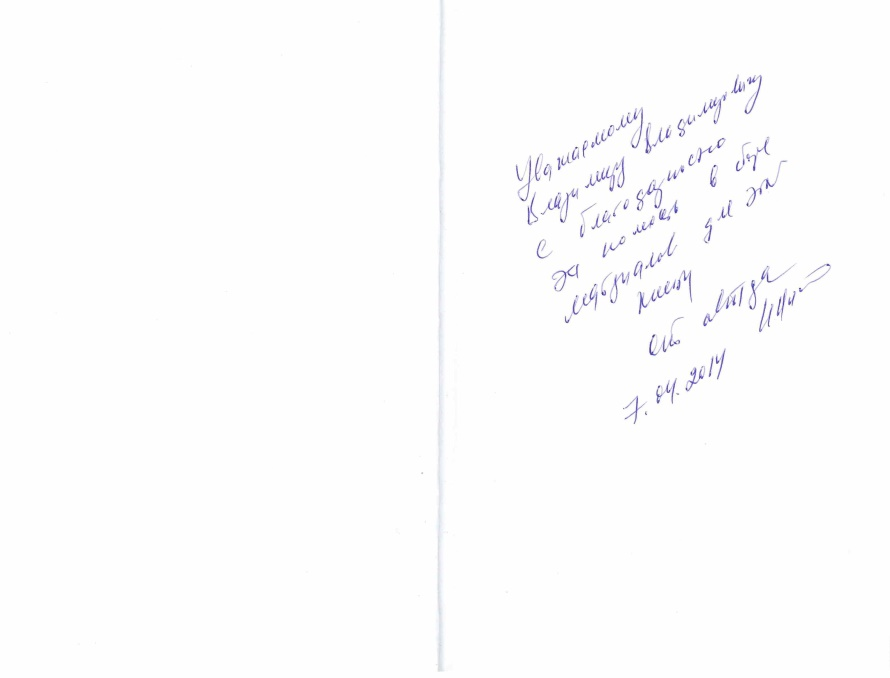 Уважаемому
Владимиру Владимировичу
с благодарностью
за помощь в сборе
материалов для этой
книги
От автора
7.04.2014